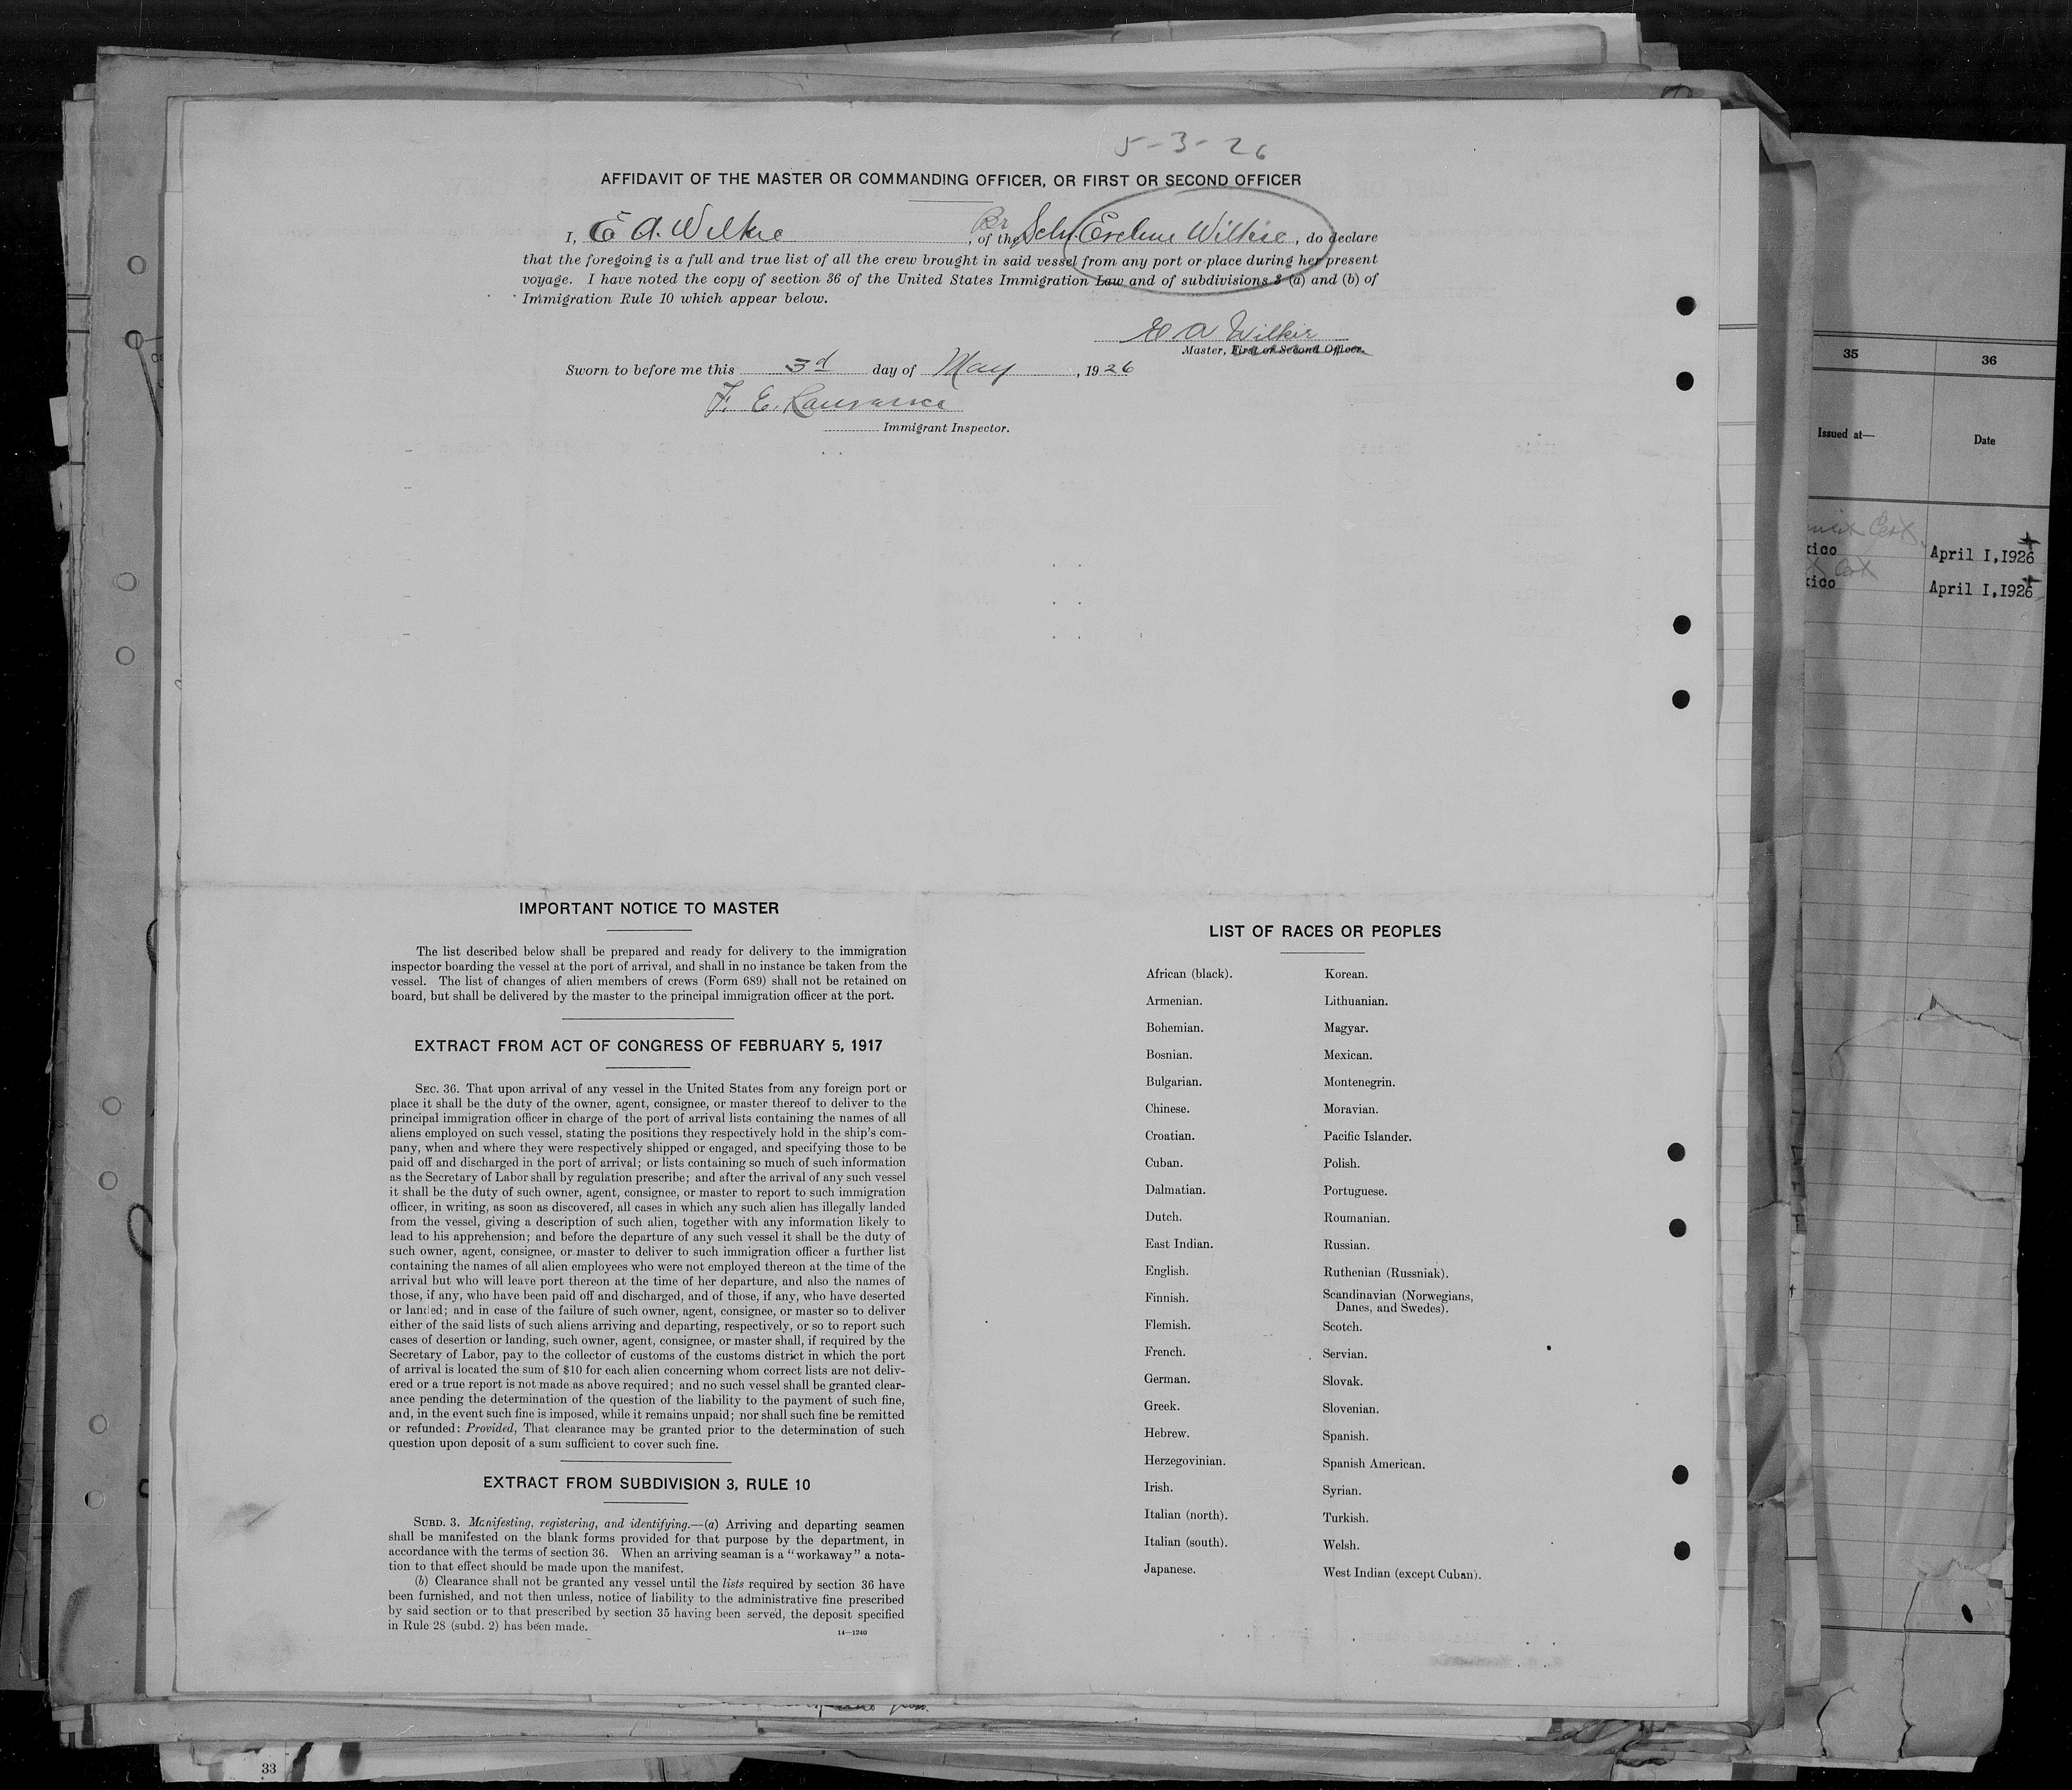 5-3-26
AFFIDAVIT OF THE MASTER OR COMMANDING OFFICER, OR FIRST OR SECOND OFFICER
I, E A. Wilkie, of the Br Schr Eveline Wilkie, do declare
that the foregoing is a full and true list of all the crew brought in said vessel from any port or place during her present
voyage. I have noted the copy of section 36 of the United States Immigration Law and of subdivisions 3 (a) and (b) of
Immigration Rule 10 which appear below.
E A Wilkie
Master, First or Second Officer.
Sworn to before me this 3d day of May, 1926
F. E.
Immigrant Inspector.
IMPORTANT NOTICE TO MASTER
The list described below shall be prepared and ready for delivery to the immigration
inspector boarding the vessel at the port of arrival, and shall in no instance be taken from the
vessel. The list of changes of alien members of crews (Form 689) shall not be retained on
board, but shall be delivered by the master to the principal immigration officer at the port.
EXTRACT FROM ACT OF CONGRESS OF FEBRUARY 5, 1917
SEC. 36. That upon arrival of any vessel in the United States from any foreign port or
place it shall be the duty of the owner, agent, consignee, or master thereof to deliver to the
principal immigration officer in charge of the port of arrival lists containing the names of all
aliens employed on such vessel, stating the positions they respectively hold in the ship's com-
pany, when and where they were respectively shipped or engaged, and specifying those to be
paid off and discharged in the port of arrival; or lists containing so much of such information
as the Secretary of Labor shall by regulation prescribe; and after the arrival of any such vessel
it shall be the duty of such owner, agent, consignee, or master to report to such immigration
officer, in writing, as soon as discovered, all cases in which any such alien has illegally landed
from the vessel, giving a description of such alien, together with any information likely to
lead to his apprehension; and before the departure of any such vessel it shall be the duty of
such owner, agent, consignee, or master to deliver to such immigration officer a further list
containing the names of all alien employees who were not employed thereon at the time of the
arrival but who will leave port thereon at the time of her departure, and also the names of
those, if any, who have been paid off and discharged, and of those, if any, who have deserted
or landed; and in case of the failure of such owner, agent, consignee, or master so to deliver
either of the said lists of such aliens arriving and departing, respectively, or so to report such
cases of desertion or landing, such owner, agent, consignee, or master shall, if required by the
Secretary of Labor, pay to the collector of customs of the customs district in which the port
of arrival is located the sum of $10 for each alien concerning whom correct lists are not deliv-
ered or a true report is not made as above required; and no such vessel shall be granted clear-
ance pending the determination of the question of the liability to the payment of such fine,
and, in the event such fine is imposed, while it remains unpaid; nor shall such fine be remitted
or refunded: Provided, That clearance may be granted prior to the determination of such
question upon deposit of a sum sufficient to cover such fine.
EXTRACT FROM SUBDIVISION 3, RULE 10
SUBD. 3. Manifesting, registering, and identifying.—(a) Arriving and departing seamen
shall be manifested on the blank forms provided for that purpose by the department, in
accordance with the terms of section 36. When an arriving seaman is a "workaway" a nota-
tion to that effect should be made upon the manifest.
(b) Clearance shall not be granted any vessel until the lists required by section 36 have
been furnished, and not then unless, notice of liability to the administrative fine prescribed
by said section or to that prescribed by section 35 having been served, the deposit specified
in Rule 28 (subd. 2) has been made.
14—1240
LIST OF RACES OR PEOPLES
African (black).
Armenian.
Bohemian.
Bosnian.
Bulgarian.
Chinese.
Croatian.
Cuban.
Dalmatian.
Dutch.
East Indian.
English.
Finnish.
Flemish.
French.
German.
Greek.
Hebrew.
Herzegovinian.
Irish.
Italian (north).
Italian (south).
Japanese.
Korean.
Lithuanian.
Magyar.
Mexican.
Montenegrin.
Moravian.
Pacific Islander.
Polish.
Portuguese.
Roumanian.
Russian.
Ruthenian (Russniak).
Scandinavian (Norwegians,
Danes, and Swedes).
Scotch.
Servian.
Slovak.
Slovenian.
Spanish.
Spanish American.
Syrian.
Turkish.
Welsh.
West Indian (except Cuban).
35 36
Issued at— Date
xico April 1, 1926
xico April 1, 1926
33